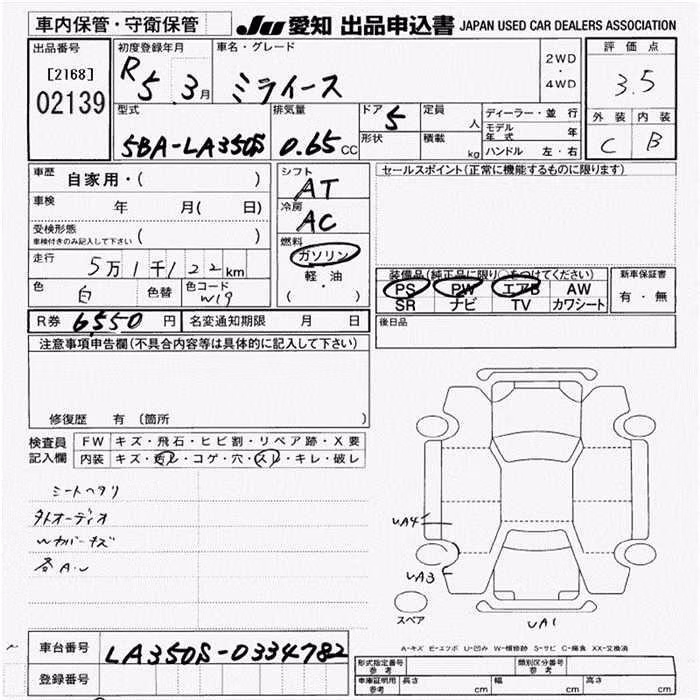 車内保管・守衛保管
JU 愛知 出品申込書 JAPAN USED CAR DEALERS ASSOCIATION
出品番号
[2168]
02139
初度登録年月
R5.3月
車名・グレード
ミライース
2WD
・
4WD
評価点
3.5
外装 内装
C B
型式
5BA-LA350S
排気量
0.65CC
ドア
5
形状
定員
人
積載
kg
ディーラー・並行
モデル年式 年
ハンドル 左・右
車歴 自家用・( )
車検 年 月( 日)
受検形態
車検付きのみ記入して下さい ( )
走行 5万1千122km
色 白 色替 色コード W19
シフト
AT
冷房
AC
燃料
ガソリン
軽・油
( ・ )
セールスポイント(正常に機能するものに限ります)
装備品(純正品に限り○をつけてください)
PS PW エアB AW
SR ナビ TV カワシート
新車保証書
有・無
R券 6550円 名変通知期限 月 日
後日品
注意事項申告欄(不具合内容等は具体的に記入して下さい)
修復歴 有(箇所 )
検査員記入欄
FW キズ・飛石・ヒビ割・リペア跡・X要
内装 キズ・汚レ・コゲ・穴・スレ・キレ・破レ
シートヘタリ
外オーディオ
Wカバーキズ
各A.U
UA4
UA3
UA1
スペア
A-キズ E-エクボ U-凹み W-補修跡 S-サビ C-腐食 XX-交換済
車台番号 LA350S-0334782
登録番号
形式指定番号 参考
類別区分番号 参考
車庫証明用 参考 長さ cm 幅 cm 高さ cm